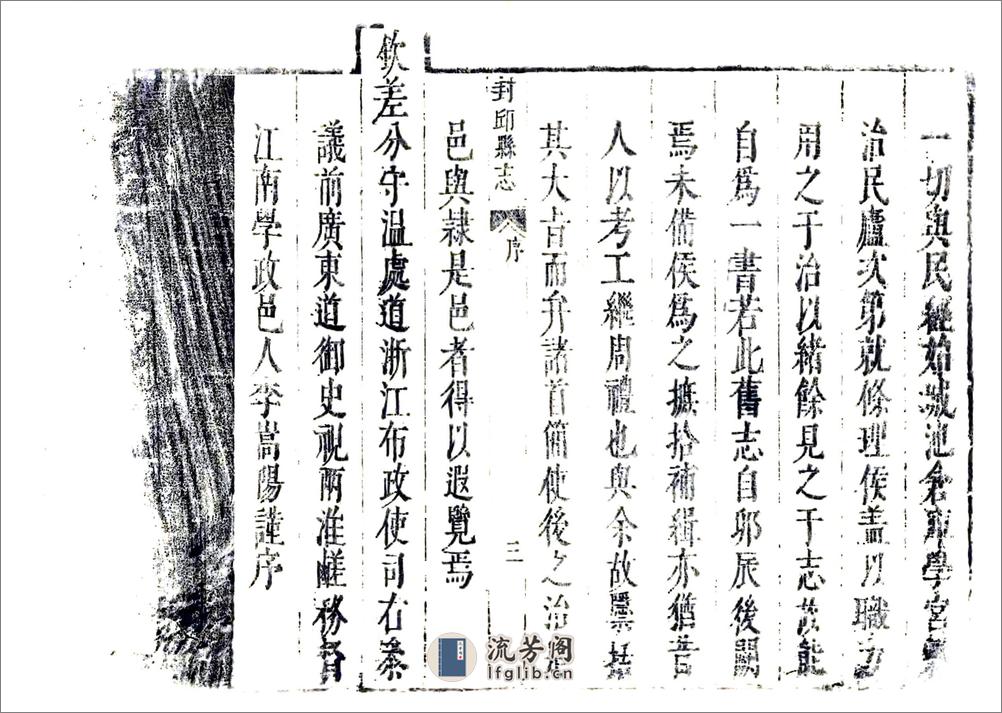 一切與民經始城池倉庫學宮
治民廬次第就條理侯盖以職方
用之于治以緒餘見之于志故能
自爲一書若此舊志自郊辰後闕
焉未備侯爲之摭拾補緝亦猶昔
人以考工繼周禮也與余故檃括
其大旨而弁諸首簡使後之治是
封邱縣志
序
三
邑與隷是邑者得以遐覽焉
欽差分守温處道浙江布政使司右叅
議前廣東道御史視兩淮鹺務督
江南學政邑人李嵩陽謹序
流芳阁
lfglib.cn